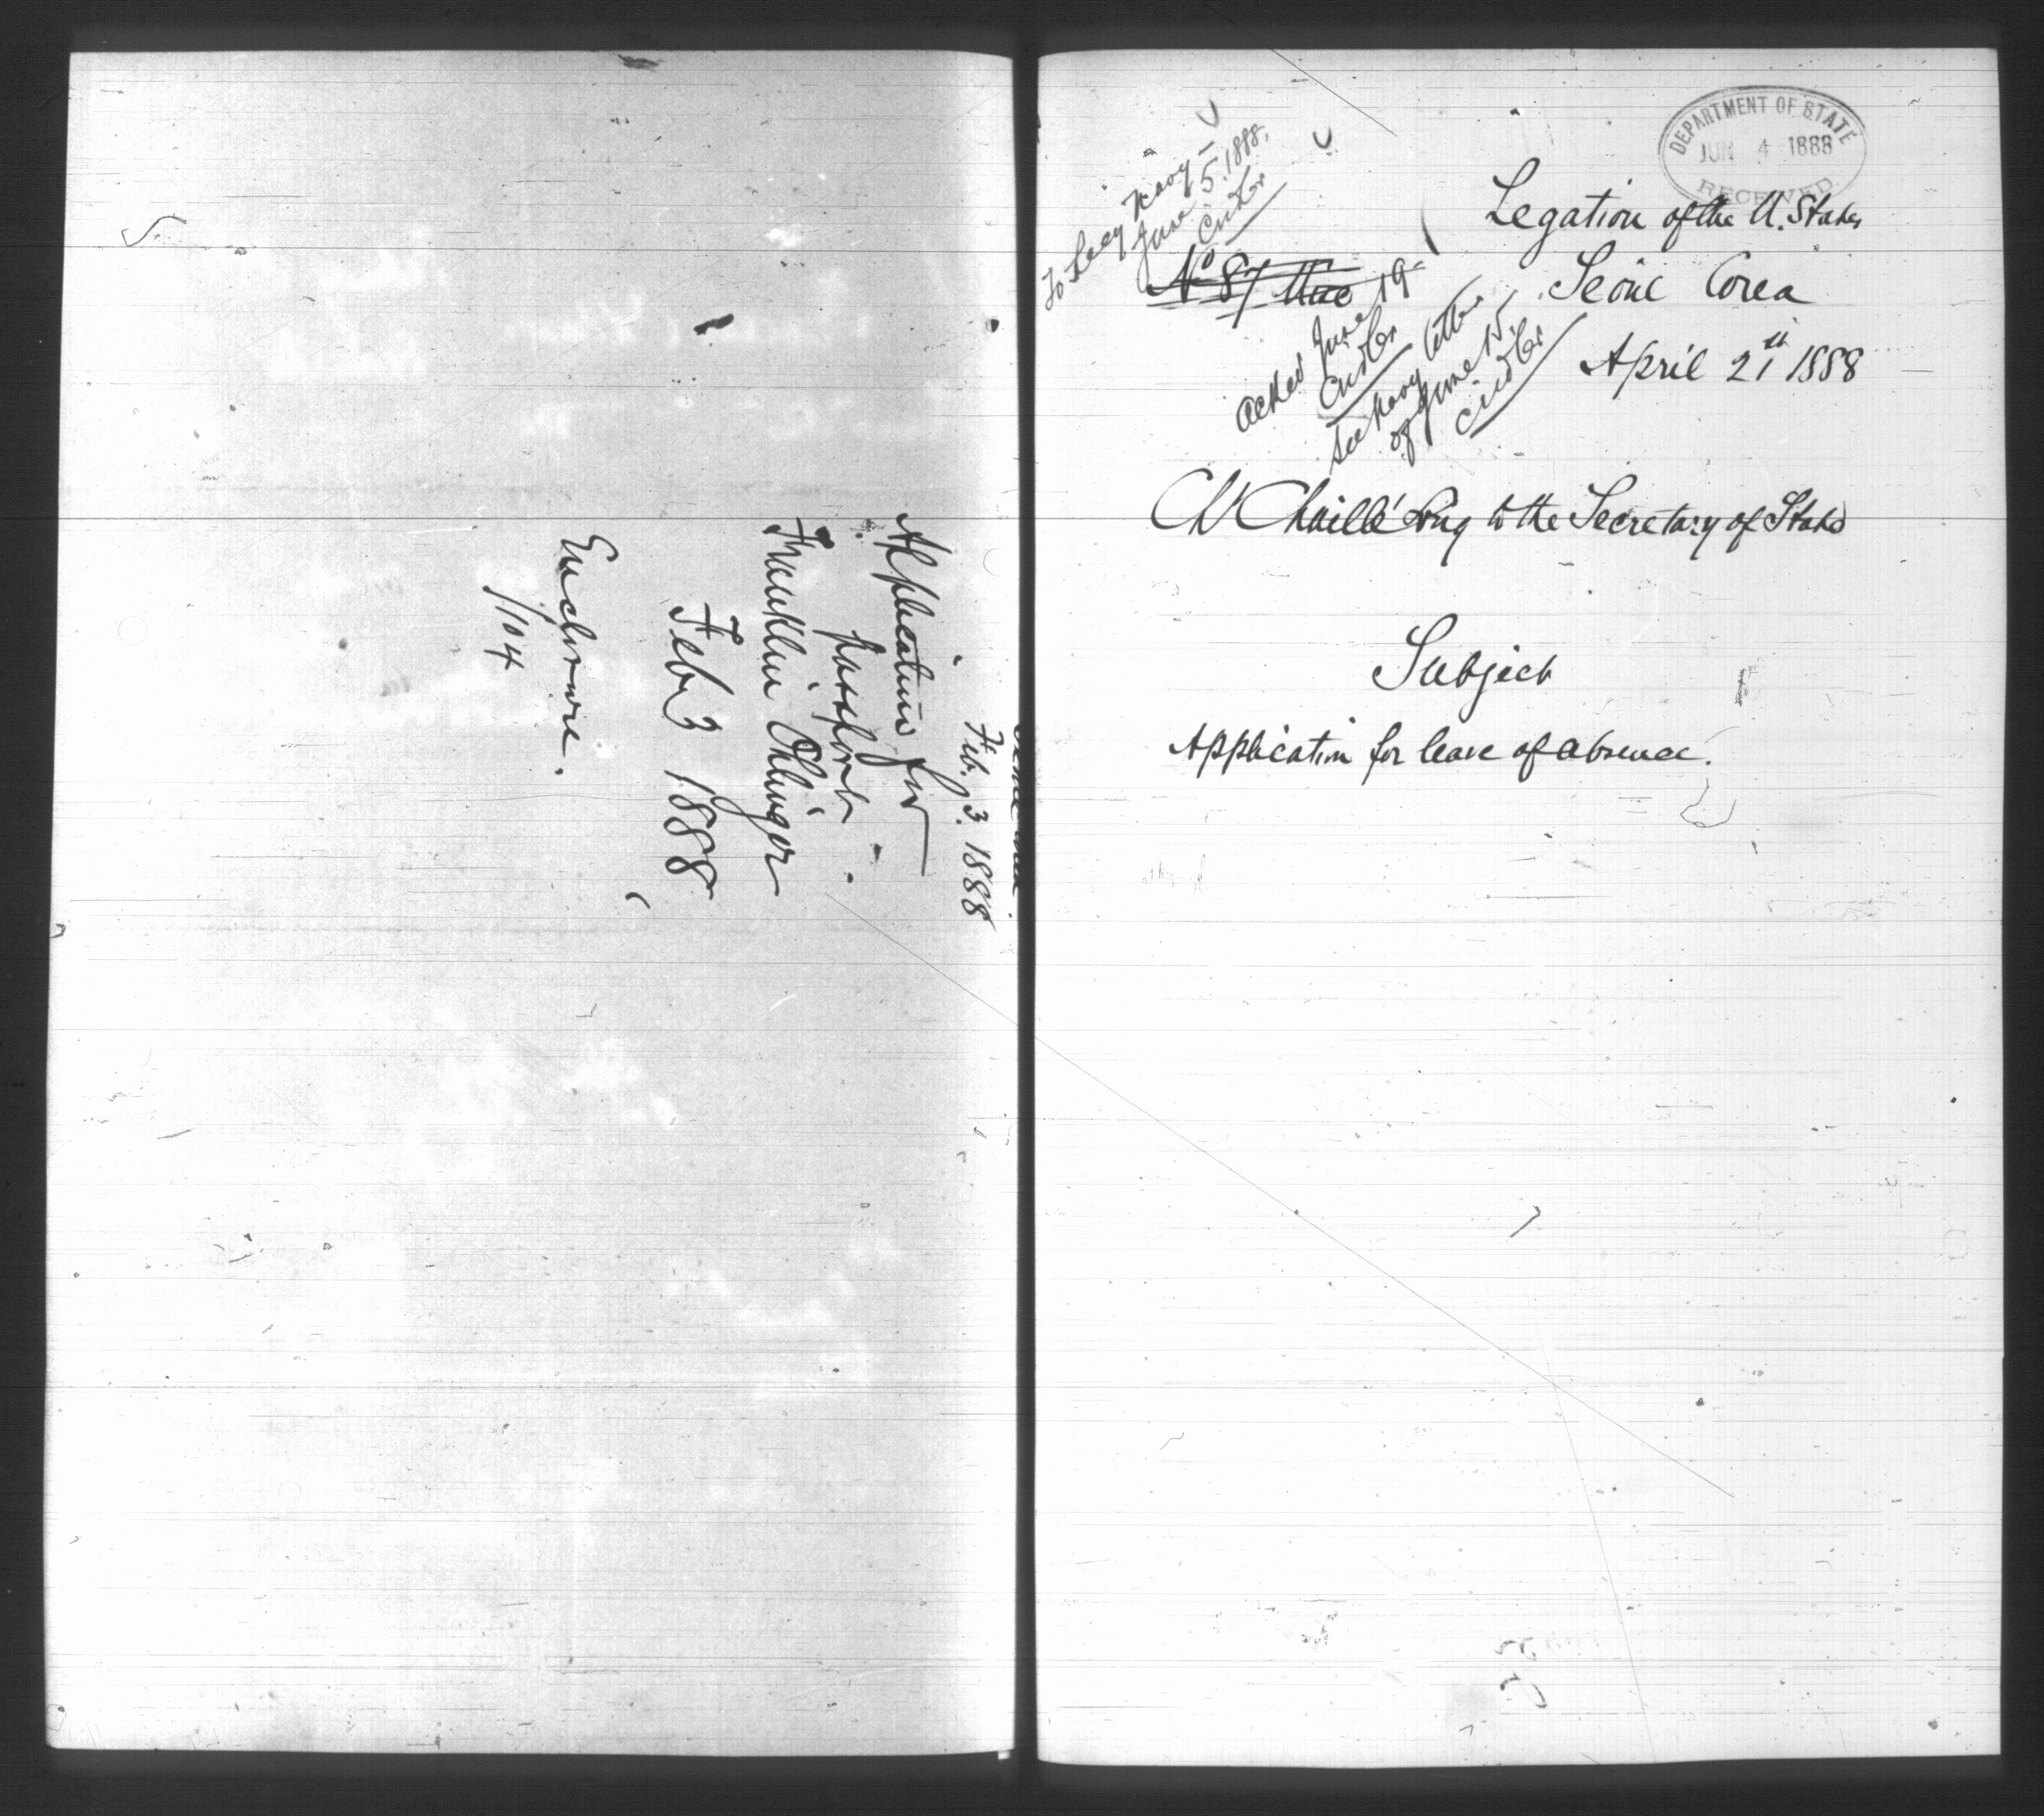 Feb. 3. 1888
Application for
passport
Franklin Ohlinger
Feby 3 1888
Enclosure.
1/104
DEPARTMENT OF STATE
JUN 4 1888
RECEIVED
To Secy Navy
June 5. 1888,
Legation of the U. States
No 87
Seoul Corea
April 21st 1888
Acked June 19
See Navy letter
of June 15
Ch Chaillé Long to the Secretary of State
Subject
Application for leave of absence.